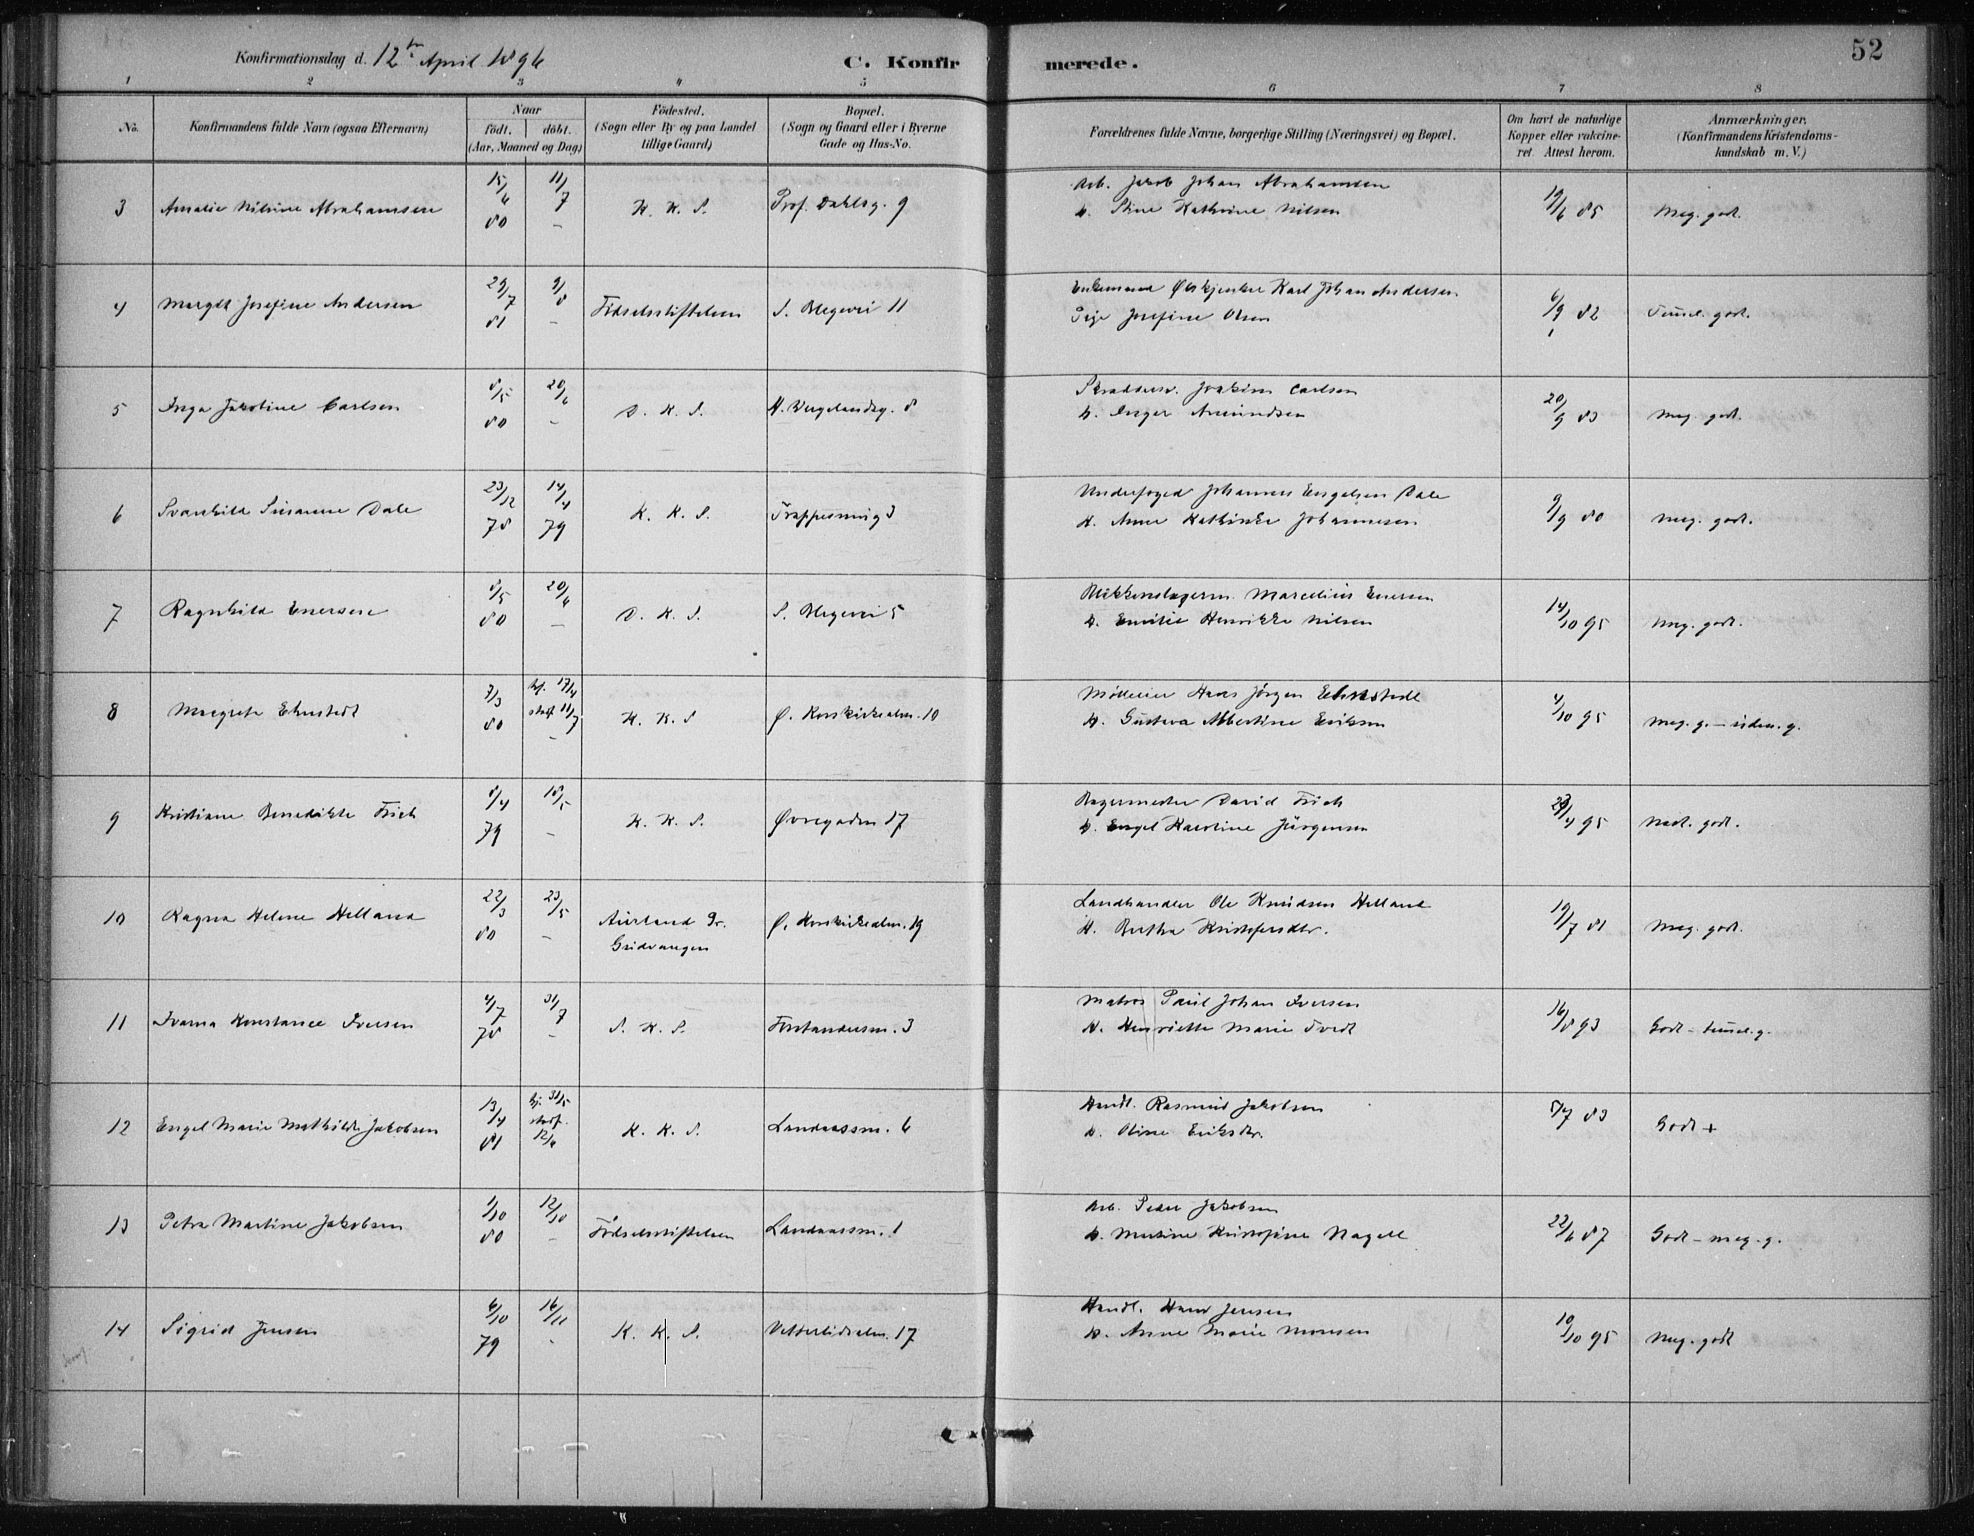 Konfirmationsdag d. 12te April 1896
C. Konfirmerede.
52
1 2 3 4 5 6 7 8
No.
Konfirmandens fulde Navn (ogsaa Efternavn)
Naar
födt. döbt.
(Aar, Maaned og Dag)
Födested.
(Sogn eller By og paa Landet
tillige Gaard)
Bopæl.
(Sogn og Gaard eller i Byerne
Gade og Hus-No.
Forældrenes fulde Navne, borgerlige Stilling (Næringsvei) og Bopæl.
Om havt de naturlige
Kopper eller vakcine-
ret. Attest herom.
Anmærkninger.
(Konfirmandens Kristendoms-
kundskab m. V.)
3 Amalie Nilsine Abrahamsen 15/6 80 11/7 – K. K. S. Prof. Dahlsg. 9
Arb. Jakob Johan Abrahamsen
H. Stine Kathrine Nilsen
19/6 85 Meg. godt.
4 Margit Josefine Andersen 29/7 81 9/8 – Födselsstiftelsen S. Blegevei 11
Enkemand Ölskjenker Karl Johan Andersen
Pige Josefine Olsen
6/9 82 Temmel. godt.
5 Inga Jakobine Carlsen 8/5 80 20/6 – D. K. S. H. Vergelandsg. 8
Skrædersv. Joakim Carlsen
H. Inger Amundsen
20/9 83 Meg. godt.
6 Svanhild Susanne Dale 23/12 78 14/4 79 K. K. S. Trappesmug 3
Underfoged Johannes Engelsen Dale
H. Anne Kathinke Johannesen
9/9 80 Meg. godt.
7 Ragnhild Enersen 8/5 80 20/6 – D. K. S. S. Blegevei 5
Blikkenslagerm. Marcelius Enersen
H. Emilie Henrikke Nilsen
14/10 95 Meg. godt.
8 Margrete Ehmstedt 3/3 80 17/4 stadf. 11/7 – K. K. S. Ø. Korskirkealm. 10
Hans Jörgen
H. Gustava Albertine Eriksen
4/10 95 Meg. g. – udm. g.
9 Kristiane Benedikte Frich 8/4 79 18/5 – K. K. S. Øvregaden 17
Bagermester David Frich
H. Engel Karoline Jürgensen
/4 95 Meget. godt.
10 Ragna Helene Helland 22/3 80 23/5 – Aurland Pr.
Gudvangen Ø. Korskirkealm. 19
Landhandler Ole Knudsen Helland
H. Bertha Kristofersdtr.
19/7 81 Meg. godt.
11 Ivarna Konstance Iversen 4/7 78 31/7 – D. K. S. Forstandersm. 3
Matros Paul Johan Iversen
H. Henriette Marie Tvedt
16/8 93 Godt – temmel. g.
12 Engel Marie Mathilde Jakobsen 13/4 81 hj. 31/5 stadf. 12/6 K. K. S. Landaassm. 6
Handl. Rasmus Jakobsen
H. Oline Eriksdtr.
5/7 83 Godt +
13 Petra Martine Jakobsen 1/10 80 12/10 – Födselsstiftelsen Landaassm. 1
Arb. Peder Jakobsen
H. Martine Kristofine Nagell
22/6 87 Godt – meg. g.
14 Sigrid Jensen 6/10 79 16/11 – K. K. S. Vetterlidsalm. 17
Handl. Hans Jensen
H. Anne Marie Monsen
10/10 95 Meg. godt